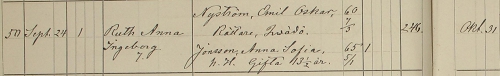 Nyström, Emil Oskar, 60
50 Sept. 24 1 Ruth Anna Rättare, 7/5 246. Okt. 31
Ingeborg Jonsson, Anna Sofia, 65 1
7. N. H. Gifta 13½ år. 5/1